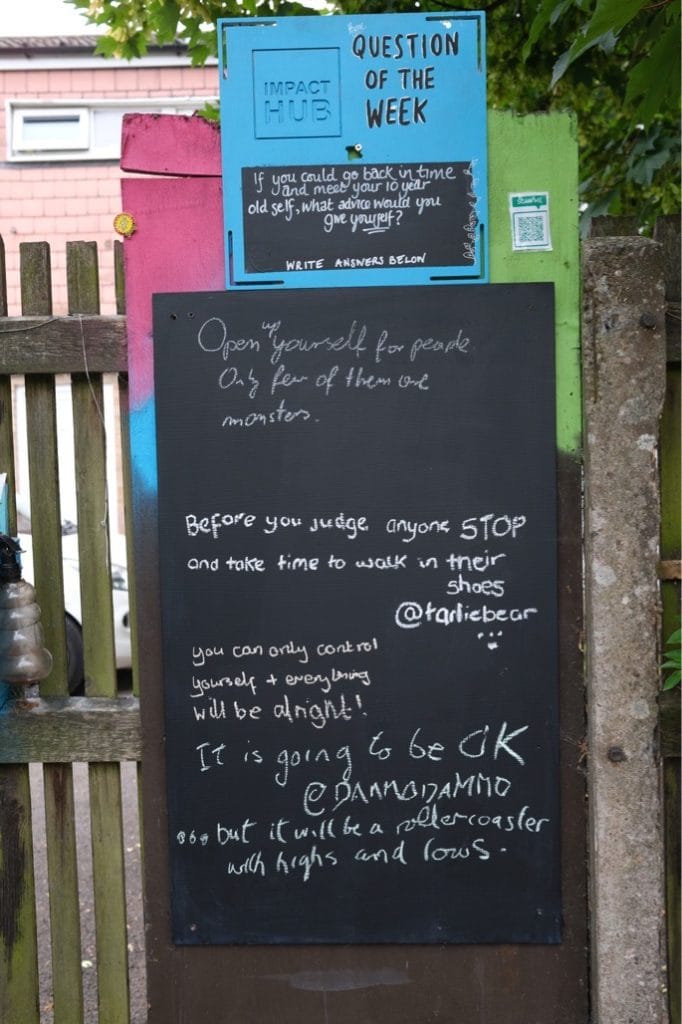 IMPACT
HUB
QUESTION
OF THE
WEEK
If you could go back in time
and meet your 10 year
old self, what advice would you
give yourself?
WRITE ANSWERS BELOW
Open up yourself for people.
Only few of them are
monsters.
Before you judge anyone STOP
and take time to walk in their
shoes
@tarliebear
you can only control
yourself + everything
will be alright!
It is going to be OK
@DANMODAMMO
... but it will be a rollercoaster
with highs and lows.